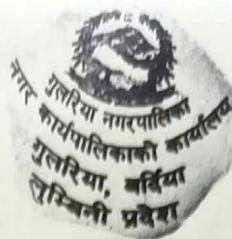 गुलरिया नगरपालिका
नगर कार्यपालिकाको कार्यालय
गुलरिया, बर्दिया
लुम्बिनी प्रदेश